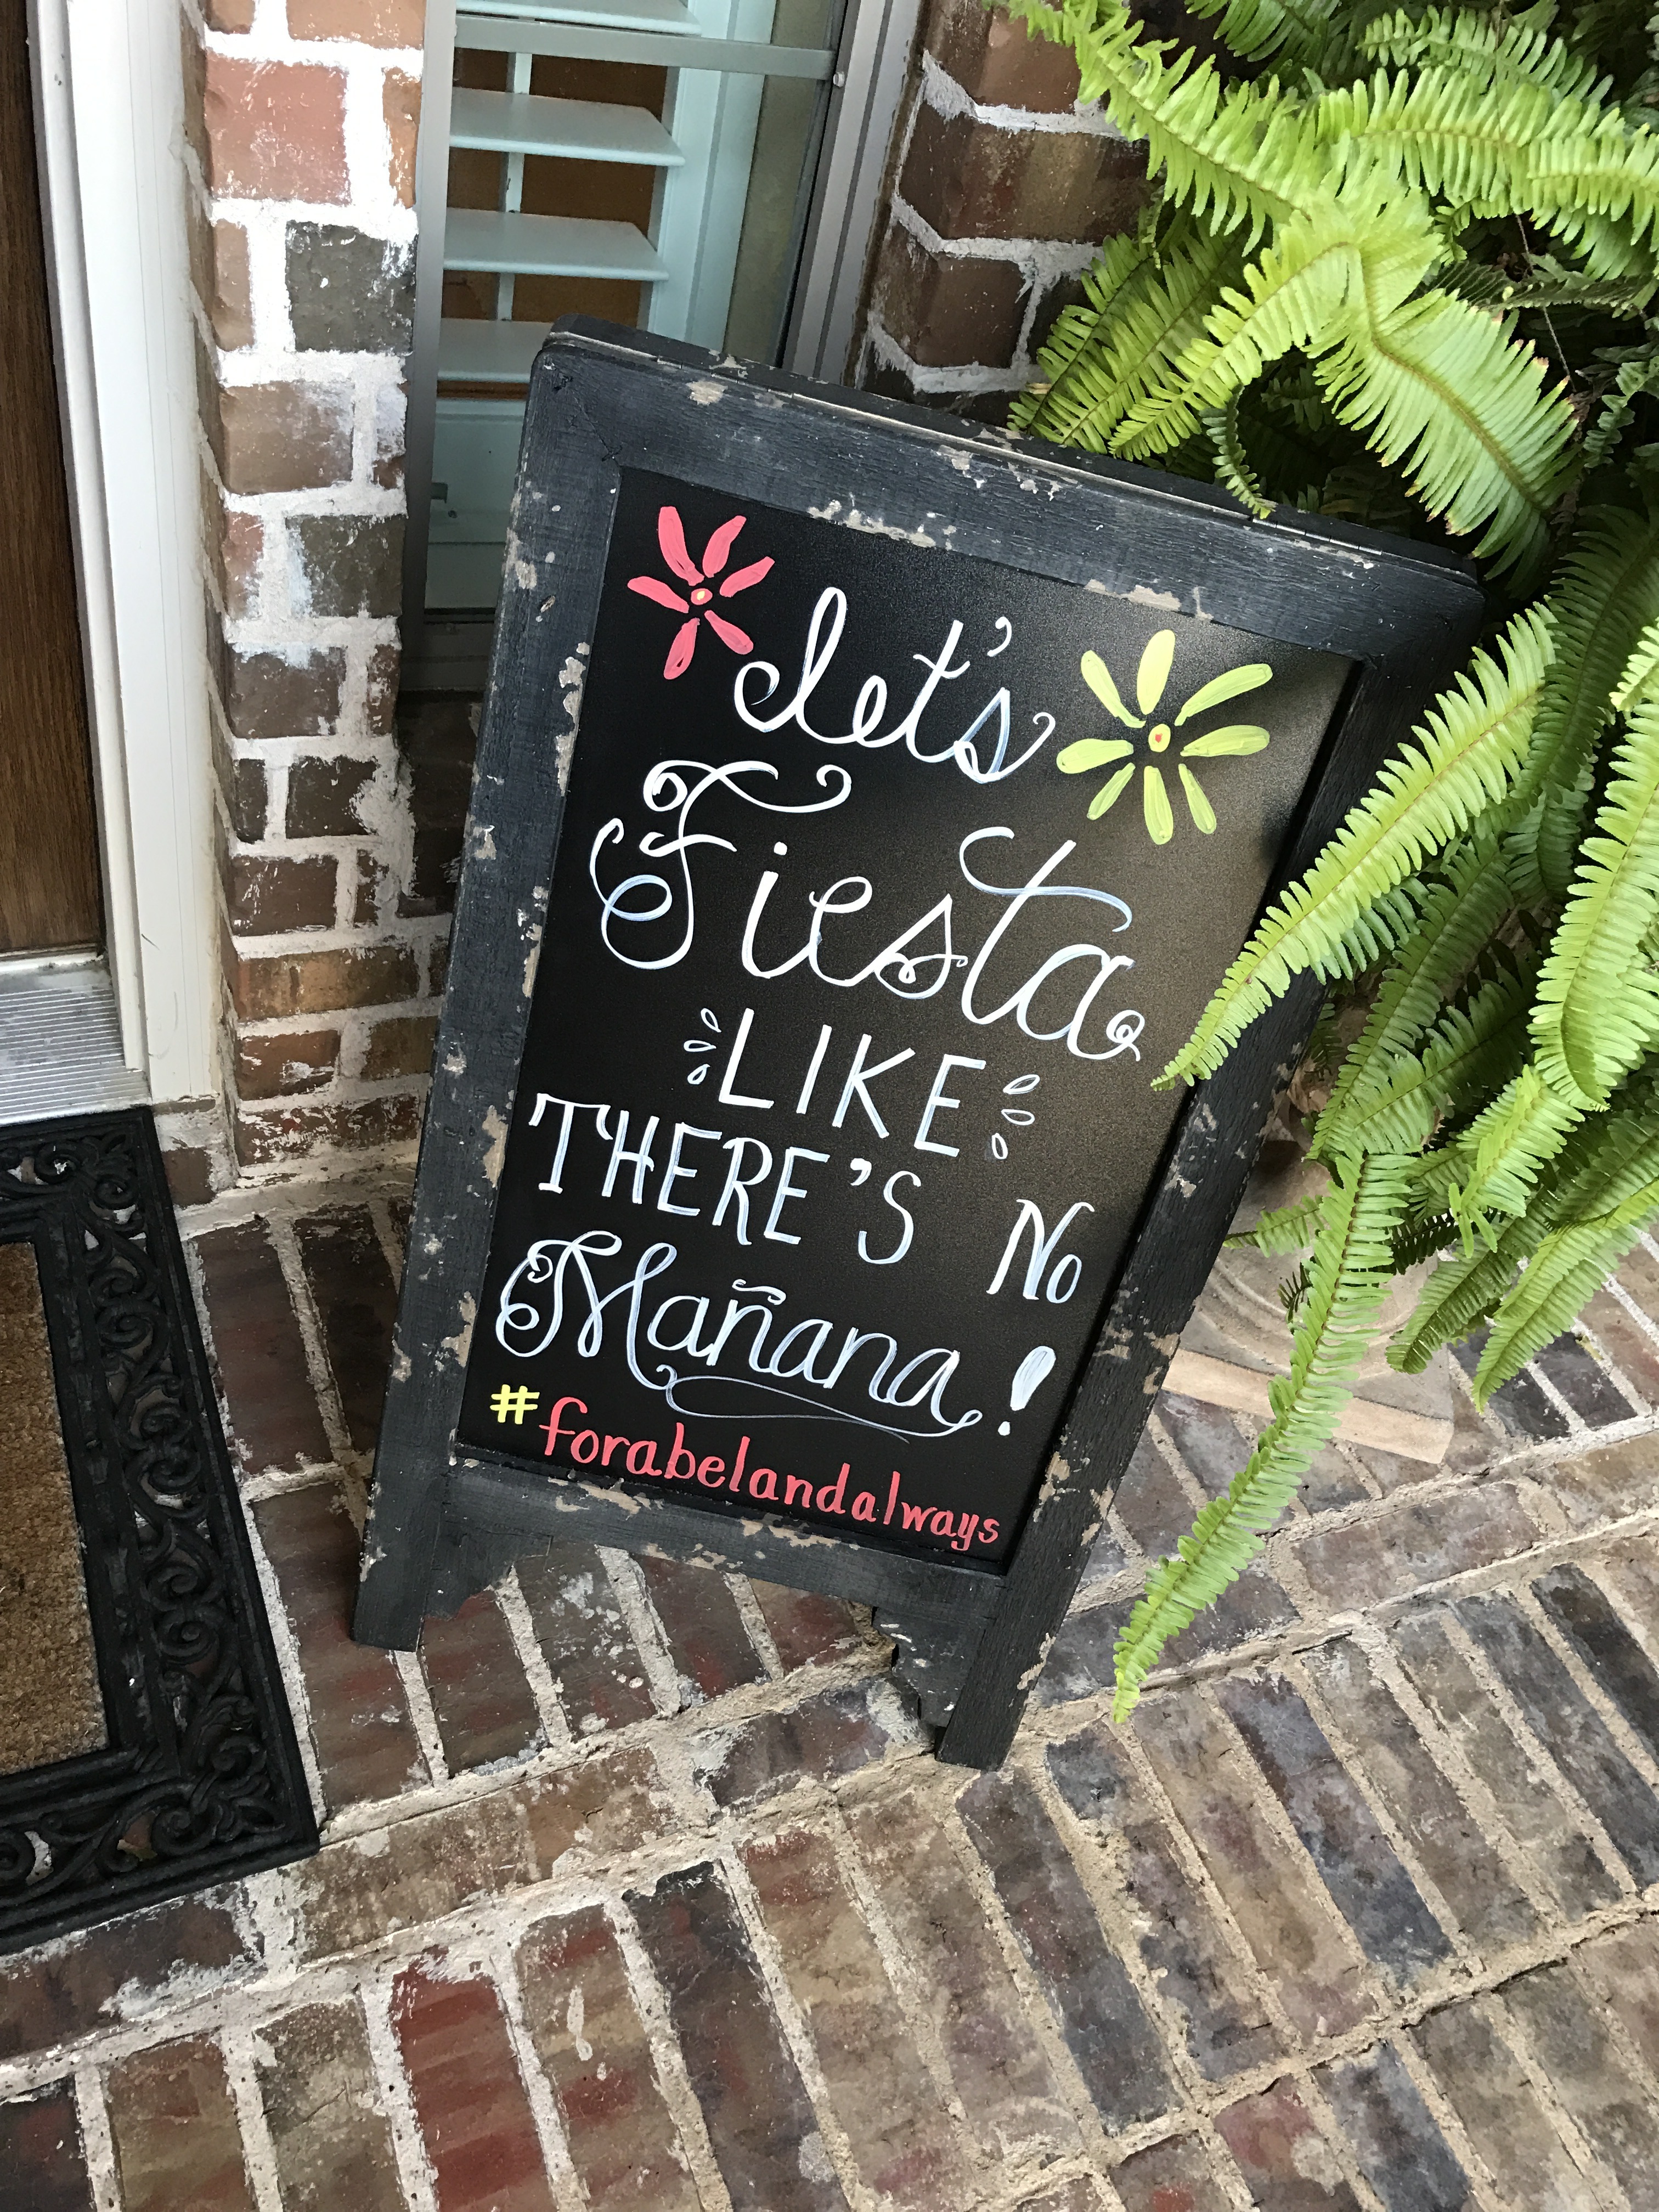 let's
Fiesta
LIKE
THERE'S NO
Mañana!
#forabelandalways